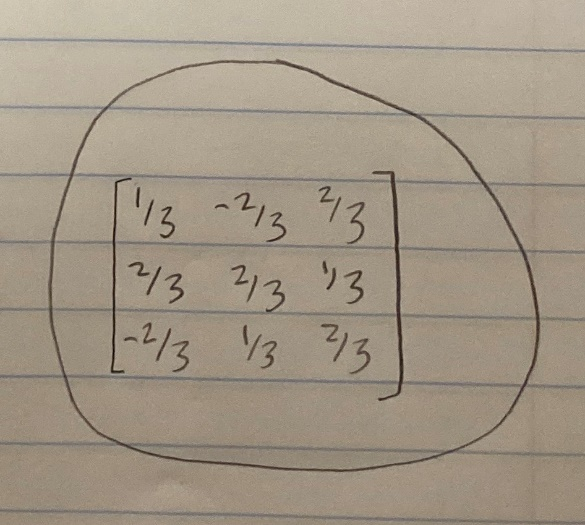 1/3 -2/3 2/3
2/3 2/3 1/3
-2/3 1/3 2/3